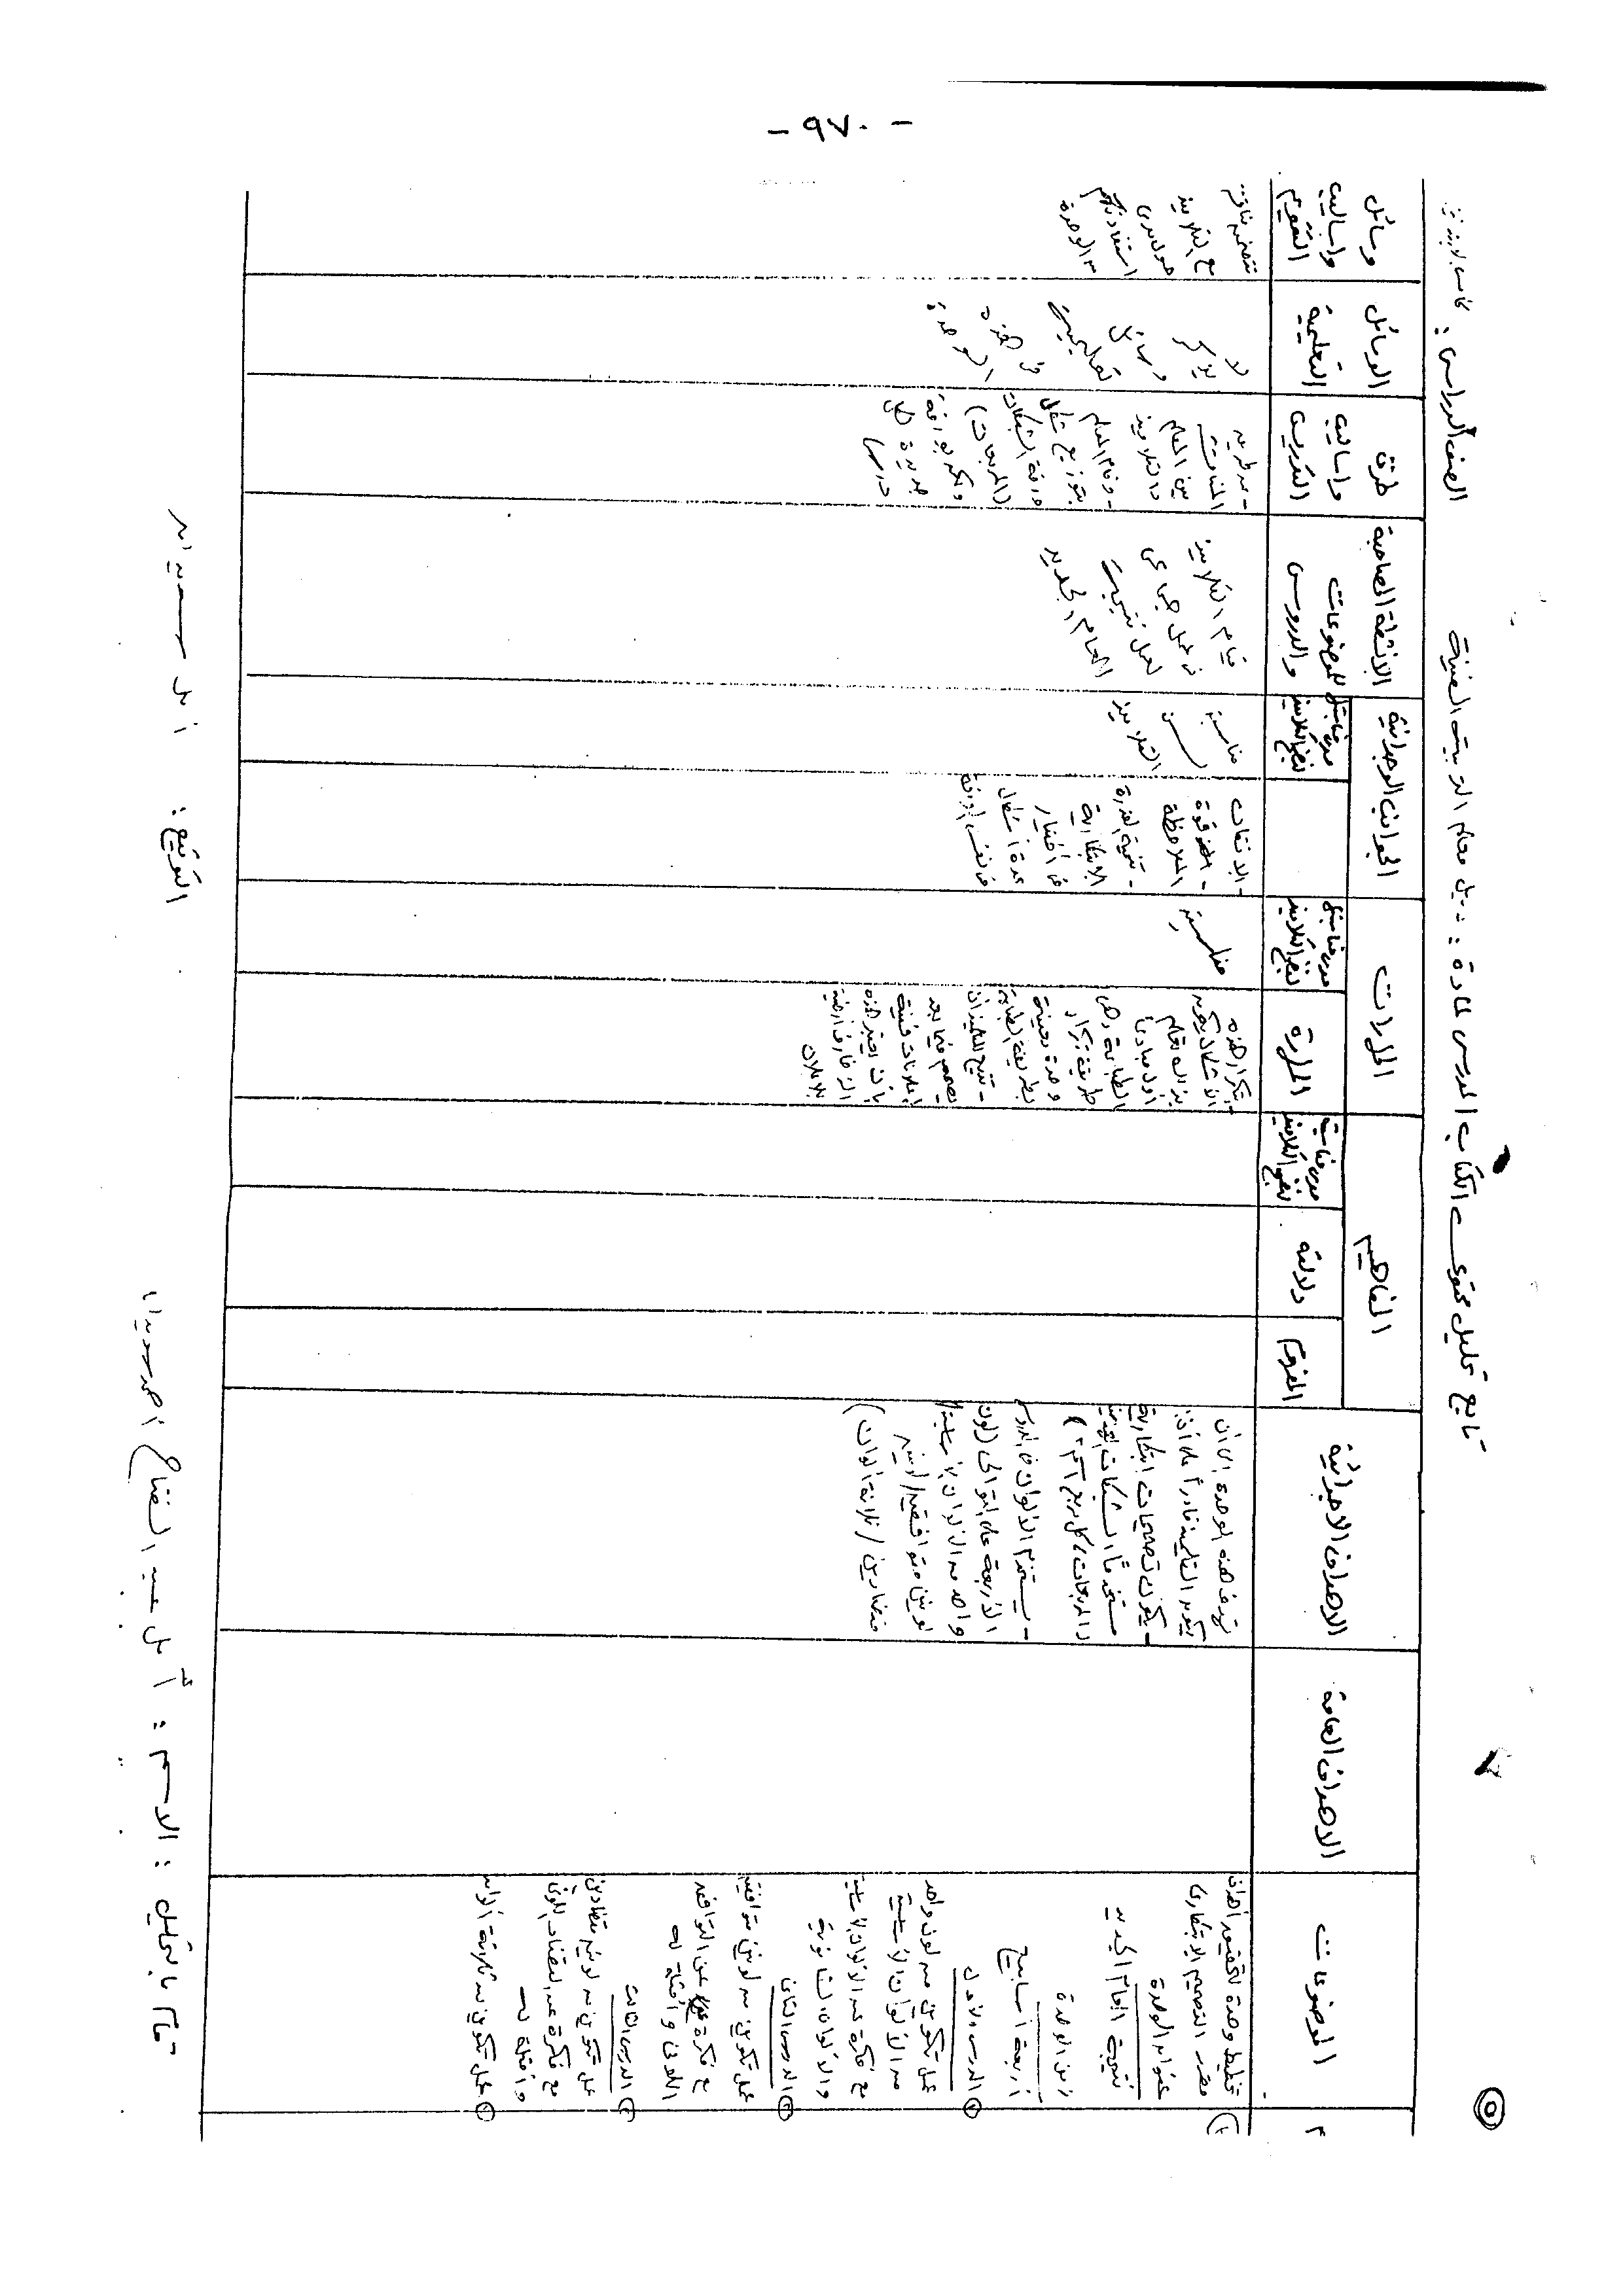 - ٩٧٠ -
تابع تحليل محتوى الكتاب المدرسى لمادة : دليل معلم التربية الفنية
الصف الدراسى :
٥
م
الموضوعات
الاهداف العامة
الاهداف الاجرائية
المفاهيم
المفهوم
دلالته
مدى مناسبته لنضج التلاميذ
المهارات
المهارة
مدى مناسبتها لنضج التلاميذ
الجوانب الوجدانية
مدى مناسبتها لنضج التلاميذ
الانشطة المصاحبة
للموضوعات
والدروس
طرق
واساليب
التدريس
الوسائل
التعليمية
وسائل
واساليب
التقويم
تخطيط وحدة لتحقيق أهداف
مقرر التصميم الابتكارى
عنوان الوحدة
نتيجة العام الجديد
زمن الوحدة
أربعة أسابيع
١ الدرس الأول
عمل تكوين من لون واحد
من الألوان الأساسية
مع فكرة عن الألوان الأساسية
والألوان الثانوية
٢ الدرس الثانى
عمل تكوين من لونين متوافقين
مع فكرة عن التوافق
اللونى وأمثلة له
٣ الدرس الثالث
عمل تكوين من لونين متضادين
مع فكرة عن التضاد اللونى
وأمثلة له
٤ عمل تكوين من ثلاثة ألوان
تهدف هذه الوحدة الى أن
يكون التلميذ قادراً على أن:
- يكون تصميمات ابتكارية
مستخدماً الشبكات الهندسية
(المربعات، كل مربع ٢سم)
- يستخدم الألوان فى الدروس
الأربعة على التوالى (لون
واحد من الألوان الأساسية /
لونين متوافقين / لونين
متضادين / ثلاثة ألوان)
- تكرار هذه
الأشكال يكون
بذلك تعلم
أول مبادئ
الطباعة وهى
طريقة تكرار
وحدة معينة
بطريقة الطباعة
- تتيح للتلميذ أن
يصمم فيما بعد
إعلانات فنية
بأن يعتبر هذه
الزخارف أرضية
للإعلان
مناسبة
- الانتقات
- قوة
الملاحظة
- تنمية القدرة
الابتكارية
فى اختيار
عدة أشكال
فى نفس الورقة
مناسبة
لسن
التلاميذ
قيام التلاميذ
فى عمل جماعى
لعمل نتيجة
العام الجديد
- عن طريق
المناقشة
بين المعلم
والتلاميذ
- وقام المعلم
بتوزيع شكل
ورقة الشبكات
(المربعات)
وتكون ورقة
جديدة لكل
درس
لا
يذكر
وسائل
تعليمية
فى هذه
الوحدة
تتضمن مناقشة
مع التلاميذ
حول مدى
استفادتهم
من الوحدة
قام بالتحليل : الاسم : أمل عبد الفتاح أحمد سويدان
التوقيع : أمل سويدان